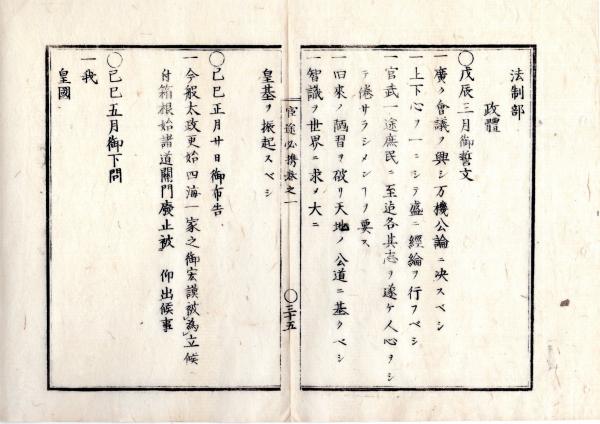 法制部
政體
○戊辰三月御誓文
一廣ク會議ノ興シ万機公論ニ决スベシ
一上下心ヲ一ニシテ盛ニ經綸ヲ行フベシ
一官武一途庶民ニ至迠各其志ヲ遂ケ人心ヲシ
テ倦サラシメンヿヲ要ス
一旧來ノ陋習ヲ破リ天地ノ公道ニ基クベシ
一智識ヲ世界ニ求メ大ニ
皇基ヲ振起スベシ
官途必携巻之一
○三十五
○己巳正月廿日御布告
一今般太政更始四海一家之御宏謨被為立候
付箱根始諸道關門廢止被 仰出候事
○己巳五月御下問
一我
皇國